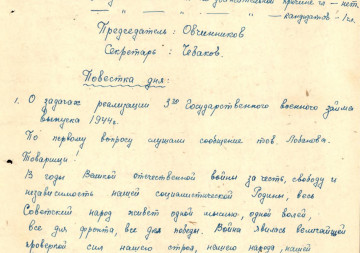 " " " уважительной причине ч - нет.
" " " кандидатов - 1ч.
Председатель : Овчинников
Секретарь : Чебаков.
Повестка дня:
1. О задачах реализации 3го Государственного военного займа
выпуска 1944г.
По первому вопросу слушали сообщение тов. Лобанова.
Товарищи!
В годы Великой отечественной войны за честь, свободу и
независимость нашей социалистической Родины, весь
Советский народ живет одной мыслью, одной волей,
все для фронта, все для победы. Война явилась величайшей
проверкой сил нашего строя, нашего народа, нашей